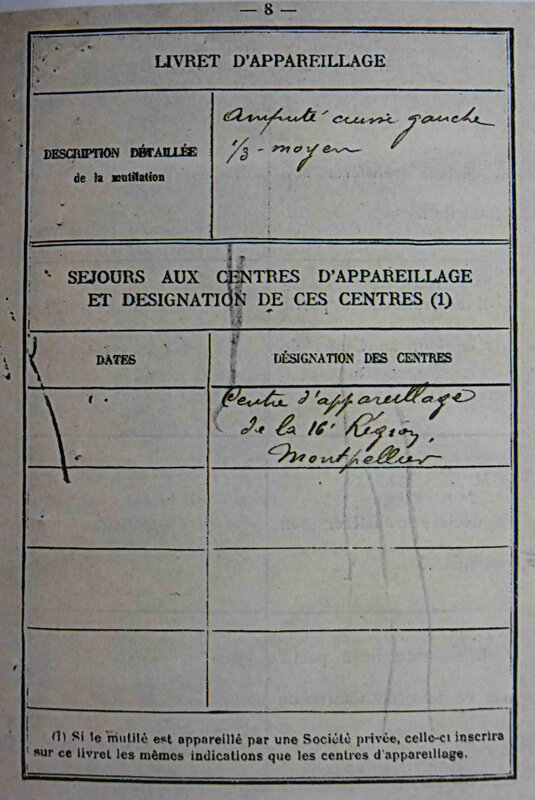 — 8 —
LIVRET D'APPAREILLAGE
DESCRIPTION DÉTAILLÉE
de la mutilation
Amputé cuisse gauche
1/3 - moyen
SEJOURS AUX CENTRES D'APPAREILLAGE
ET DESIGNATION DE CES CENTRES (1)
DATES
DÉSIGNATION DES CENTRES
Centre d'appareillage
de la 16e Région,
Montpellier
(1) Si le mutilé est appareillé par une Société privée, celle-ci inscrira
sur ce livret les mêmes indications que les centres d'appareillage.